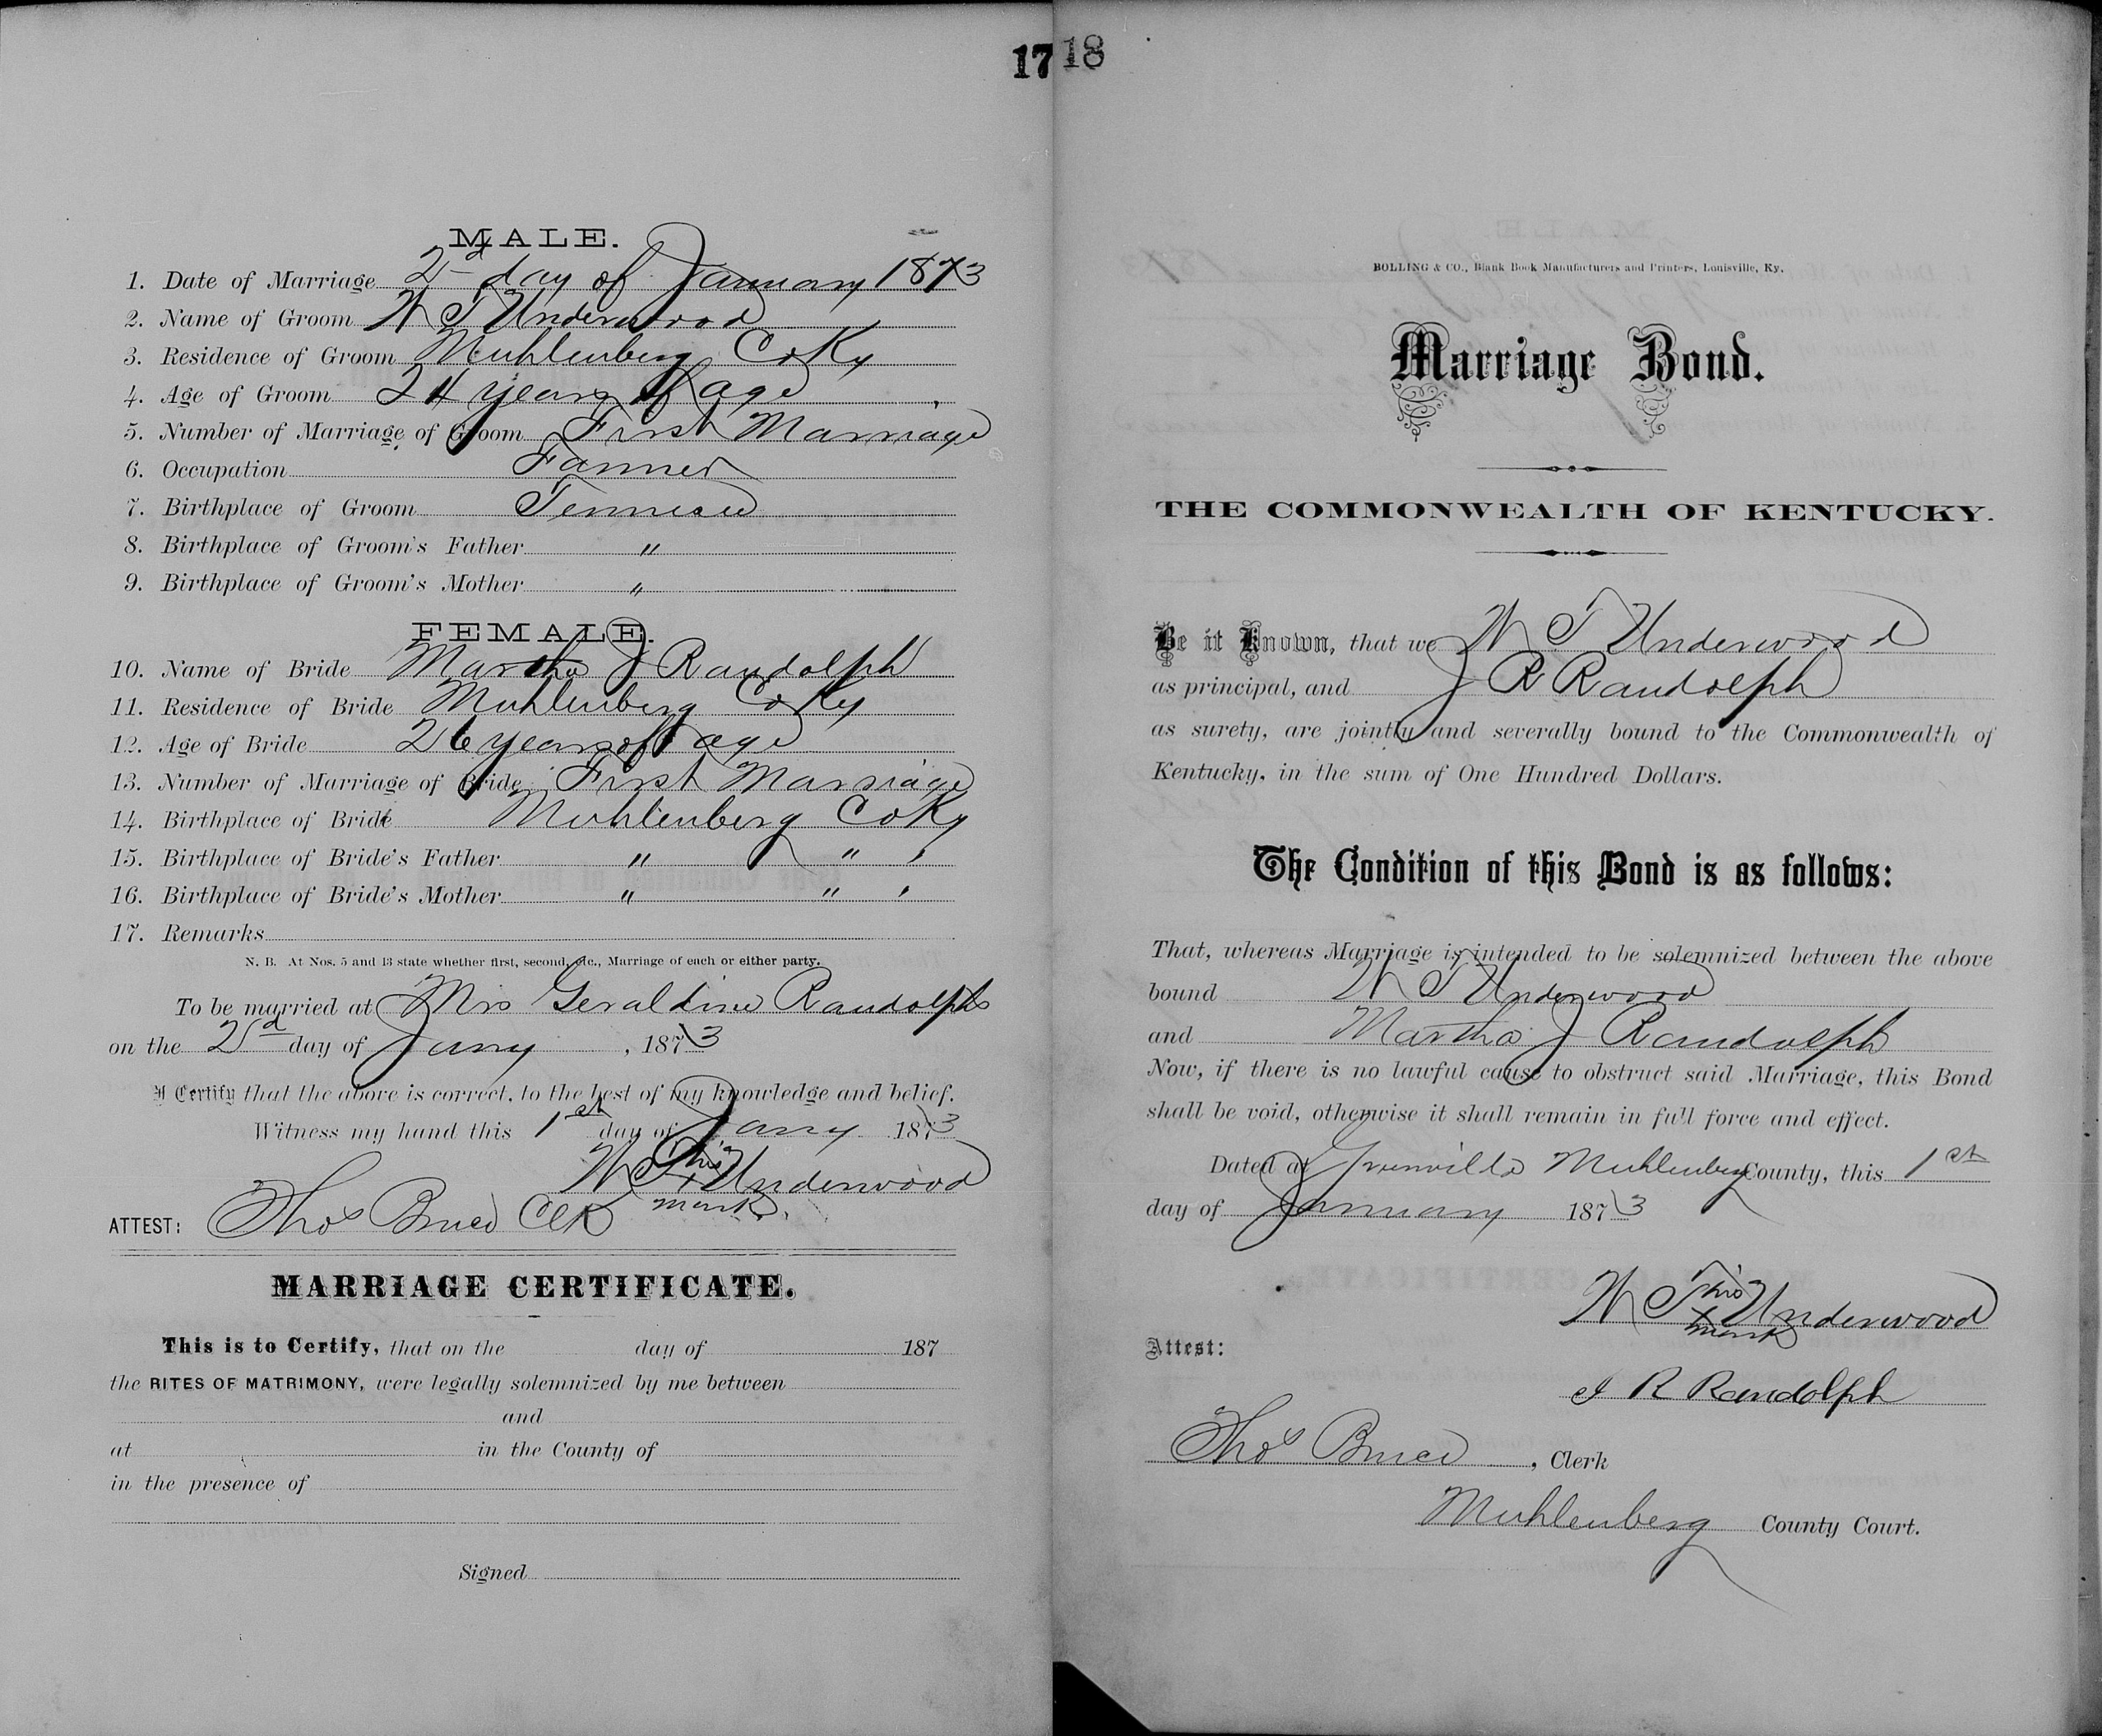 17
MALE.
1. Date of Marriage 2d day of January 1873
2. Name of Groom W T Underwood
3. Residence of Groom Muhlenberg Co Ky
4. Age of Groom 24 years of age
5. Number of Marriage of Groom First Marriage
6. Occupation Farmer
7. Birthplace of Groom Tennessee
8. Birthplace of Groom's Father "
9. Birthplace of Groom's Mother "
FEMALE.
10. Name of Bride Martha J Randolph
11. Residence of Bride Muhlenberg Co Ky
12. Age of Bride 26 years of age
13. Number of Marriage of Bride First Marriage
14. Birthplace of Bride Muhlenberg Co Ky
15. Birthplace of Bride's Father " " "
16. Birthplace of Bride's Mother " " "
17. Remarks
N. B. At Nos. 5 and 13 state whether first, second, etc., Marriage of each or either party.
To be married at Mrs Geraldine Randolphs
on the 2d day of Jany, 1873
I Certify that the above is correct, to the best of my knowledge and belief.
Witness my hand this 1st day of Jany 1873
W T his x mark Underwood
ATTEST: Thos Bruce Clk
MARRIAGE CERTIFICATE.
This is to Certify, that on the day of 187
the RITES OF MATRIMONY, were legally solemnized by me between
and
at in the County of
in the presence of
Signed
18
BOLLING & CO., Blank Book Manufacturers and Printers, Louisville, Ky.
Marriage Bond.
THE COMMONWEALTH OF KENTUCKY.
Be it Known, that we W T Underwood
as principal, and J R Randolph
as surety, are jointly and severally bound to the Commonwealth of
Kentucky, in the sum of One Hundred Dollars.
The Condition of this Bond is as follows:
That, whereas Marriage is intended to be solemnized between the above
bound W T Underwood
and Martha J Randolph
Now, if there is no lawful cause to obstruct said Marriage, this Bond
shall be void, otherwise it shall remain in full force and effect.
Dated at Greenville Muhlenberg County, this 1st
day of January 1873
W T his x mark Underwood
Attest:
J R Randolph
Thos Bruce, Clerk
Muhlenberg County Court.